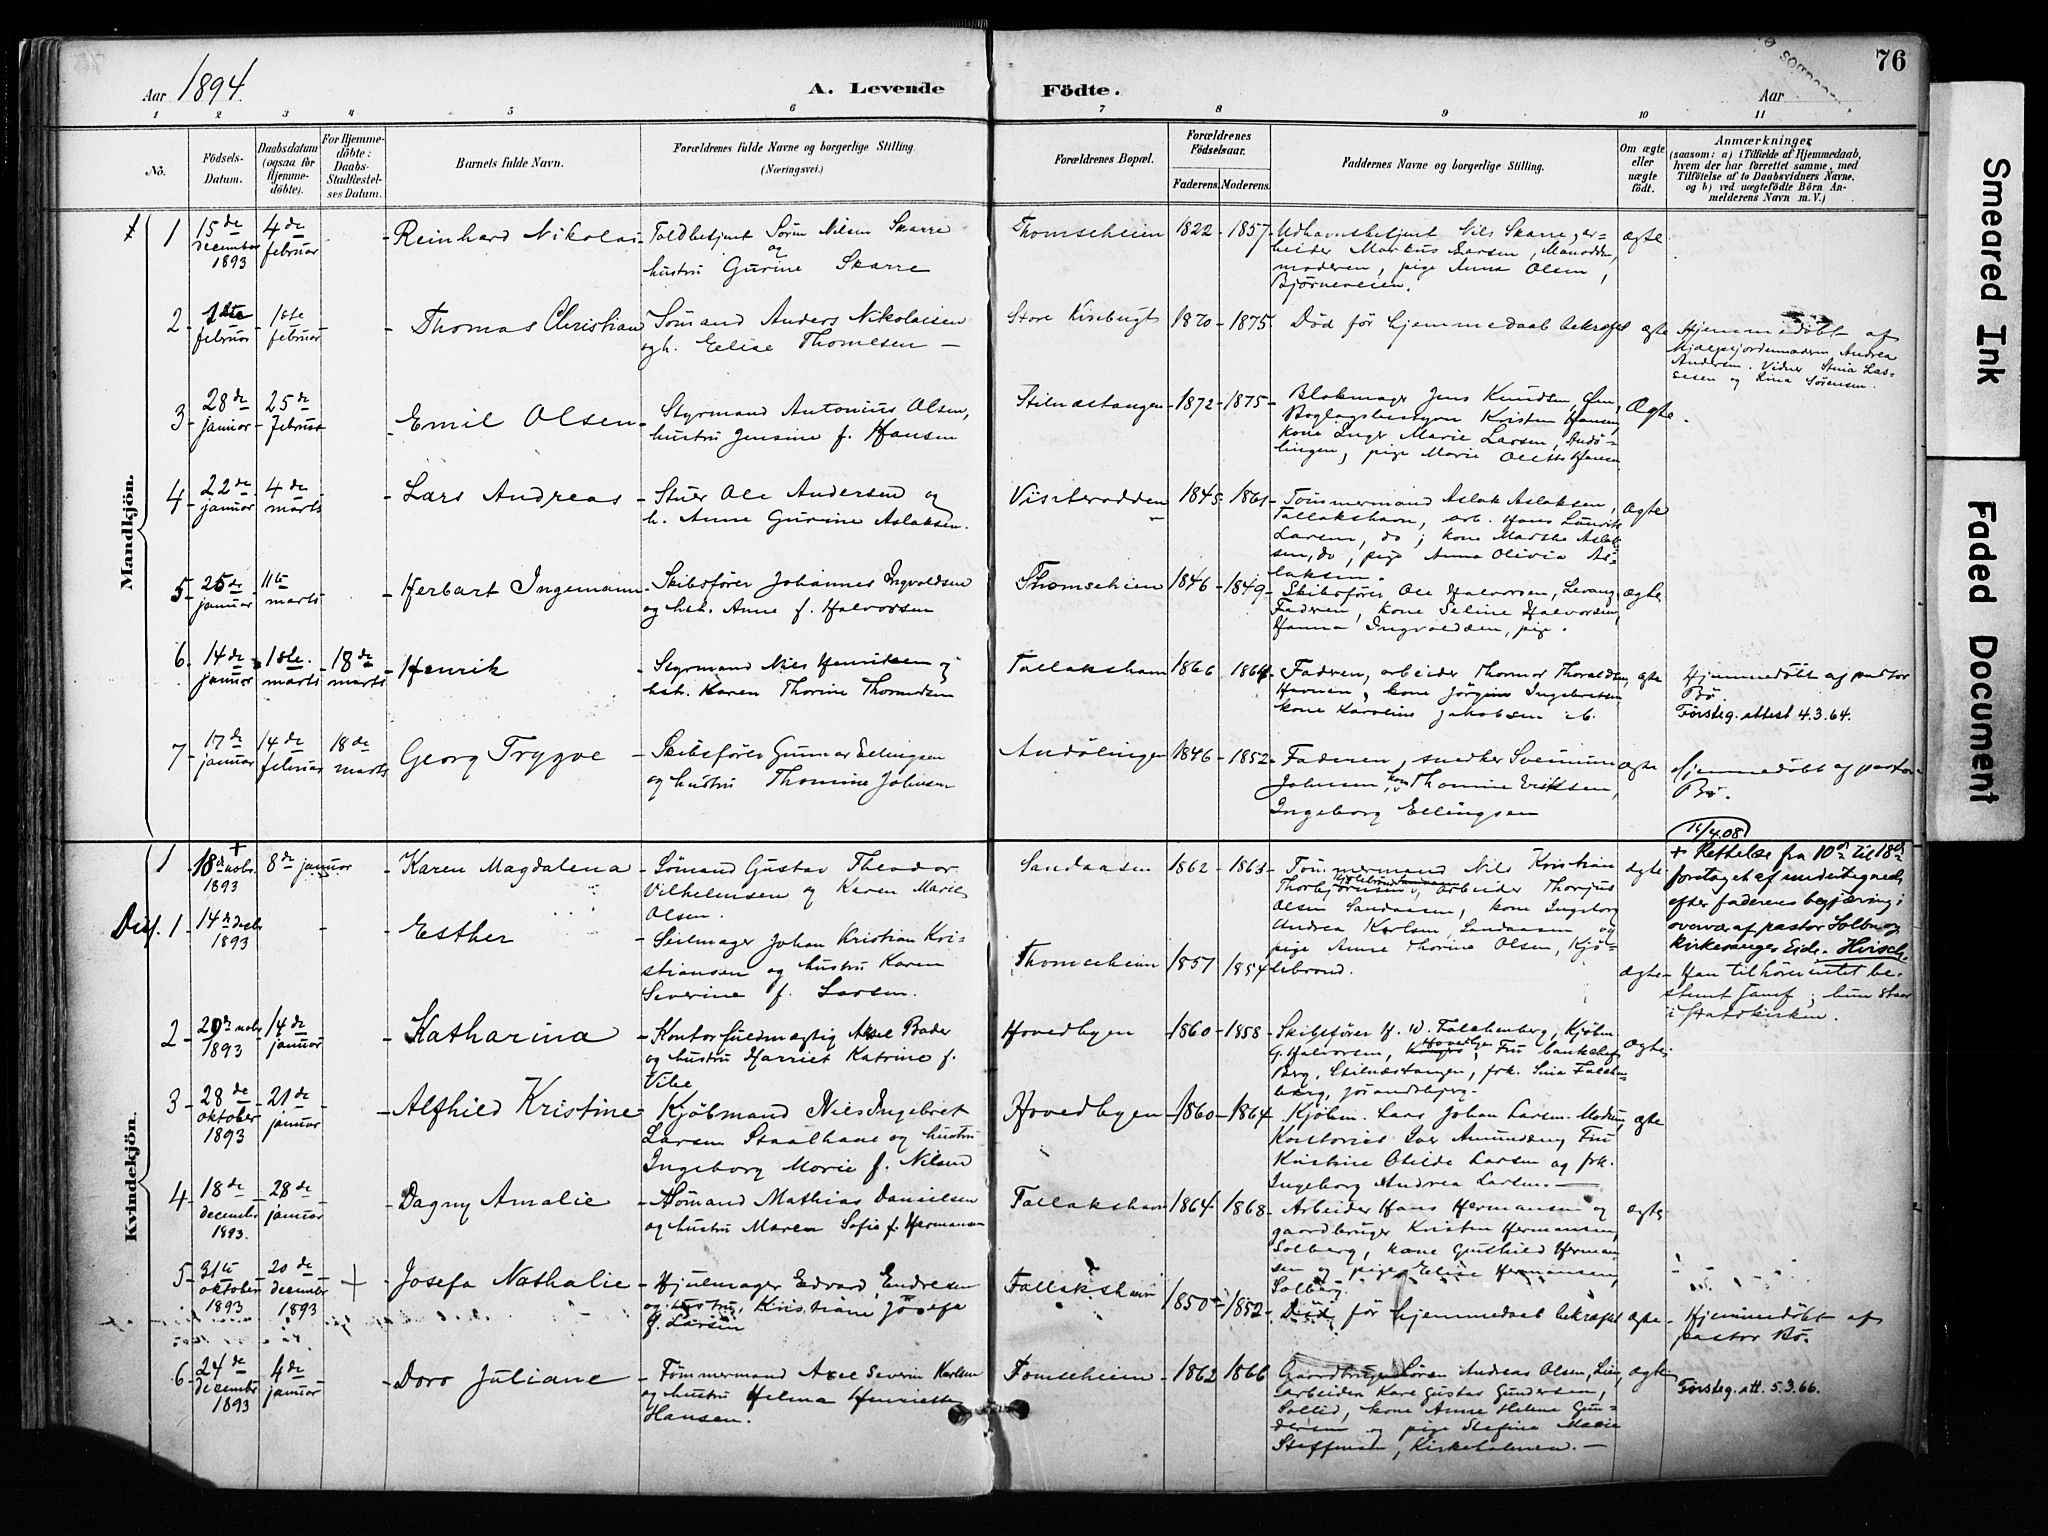 Aar 1894.
A. Levende Födte.
76
Aar
1 2 3 4 5 6 7 8 9 10 11
No.
Födsels-Datum.
Daabsdatum (ogsaa for Hjemmedöbte).
For Hjemmedöbte: Daabs-Stadfæstelses Datum.
Barnets fulde Navn.
Forældrenes fulde Navne og borgerlige Stilling.
(Næringsvei.)
Forældrenes Bopæl.
Forældrenes Födselsaar.
Faderens. Moderens.
Faddernes Navne og borgerlige Stilling.
Om ægte eller uægte födt.
Anmærkninger
(saasom: a) i Tilfælde af Hjemmedaab,
hvem der har forrettet samme, med
Tilföielse af to Daabsvidners Navne,
og b) ved uægtefödte Börn Anmelderens Navn m. V.)
Mandkjön.
1 15de december 1893 4de februar - Reinhard Nikolai
Toldbetjent Sören Nilsen Skarre
og
hustru Gurine Skarre
Thomseheien 1822 - 1857
Udhavnsbetjent Nils Skarre, arbeider Markus Larsen,
moderen, pige Anna Olsen,
Bjørneveien.
ægte
2 - 1ste februar - 1ste februar - Thomas Christian
Sömand Anders Nikolaisen
ogh. Elise Thomesen -
Store Kirebugt 1870 - 1875
Död før hjemmedaab bekræftet ægte
Hjemmedöbt af
Hjælpejordemoderen Andrea
Andersen. Vidner Stina Lassesen og Lina Sørensen.
3 - 28de januar - 25de februar - Emil Olsen
Styrmand Antonius Olsen,
hustru Jensine f. Hansen
Stilnæstangen 1872 - 1875
Blokmager Jens Knudsen,
Kristen Hansen,
kone Inger Marie Larsen, Andölingen, pige Marie Hansen
Ægte.
4 - 22de januar 4de marts - Lars Andreas
Stuer Ole Andersen og
h. Anne Gurine Aslaksen.
Visterodden 1845 - 1861
Tømmermand Aslak Aslaksen,
Tallakshavn, arb. Hans Laurits
Larsen, do; kone Marthe Aslaksen, do, pige Anna Olivia Aslaksen.
Ægte
5 - 25de januar 11te marts - Herbart Ingemann
Skibsfører Johannes Ingvoldsen
og hst. Anne f. Halvorsen
Thomseheien 1846 - 1849
Skibsfører Ole Halvorsen, Levang,
Faderen, kone Seline Halvorsen,
Hanna Ingvoldsen, pige.
ægte
6. 14de januar 18te marts 18de marts - Henrik
Styrmand Nils Henriksen og
hst. Karen Thorine Thomesen
Tallakshavn 1866 1864
Faderen, arbeider Thomas Thoraldsen,
Havnen, kone Jörgine Ingebretsen
kone Karoline Jakobsen
ægte
Hjemmedöbt af pastor
Bö.
Førsteg. attest 4.3.64.
7 - 17de januar 14de februar 18de marts Georg Trygve
Skibsfører Gunnar Ellingsen
og hustru Thomine Johnsen
Andölingen 1846 - 1852
Faderen, snedker Sveinung
Johnsen, kone Thomine Eriksen,
Ingeborg Ellingsen
Ægte
Hjemmedöbt af pastor
Bö.
Kvindekjön.
1 18de nobr. 1893 8de januar - Karen Magdalena
Sömand Gustav Theodor
Vilhelmsen og Karen Marie
Olsen.
Sandaasen 1862 - 1863
Tømmermand Nils Kristian
Thorbjørnsen, arbeider Thorjus
Olsen Sandaasen, kone Ingeborg
Andrea Karlsen, Sandaasen og
pige Anne Thorine Olsen, Kjölebrønd.
ægte
16/4.08
+ Rettelse fra 10de til 18de
foretaget af undertegnede
efter faderens begjæring i
overvær af pastor Solbu og
kirkesanger Eide. Hirsch.
Diss. 1 14de decbr. 1893 - - - Esther
Seilmager Johan Kristian Kristiansen og hustru Karen
Severine f. Larsen.
Thomseheien 1857 1854
Ægte -
Han tilhører intet bestemt samf; hun staar
i statskirken.
2 - 29de nobr. 1893 14de januar - Katharina
Kontorfuldmægtig Axel Bader
og hustru Harriet Katrine f.
Vibe
Hovedbyen 1860 - 1858
Skibsfører H. W. Falckenberg, Kjøbm.
G. Halvorsen, Hovedbyen, Fru bankchef
Berg, Stilnæstangen, frk. Sina Falckenberg,
Ægte
3 - 28de oktober 1893 21de januar - Alfhild Kristine
Kjöbmand Nils Ingebret
Larsen Staalhane og hustru
Ingeborg Marie f. Nilsen
Hovedbyen 1860 - 1864
Kjøbm. Lars Johan Larsen
Kontorist Iver Amundsen, Fru
Kristine Otilde Larsen og frk.
Ingeborg Andrea Larsen. -
ægte
4 - 18de decembr 1893. 28de januar - Dagny Amalie
Sömand Mathias Danielsen
og hustru Maren Sofie f. Hermansen
Tallakshavn 1864 - 1868
Arbeider Hans Hermansen og
gaardbruger Kristen Hermansen,
Solberg, kone Gunhild Hermansen og pige Elise Hermansen,
Solberg.
ægte
5 - 31te oktober 1893 20de december 1893 + - Josefa Nathalie
Hjulmager Edvard Endresen
og hustru Kristiane Josefa
f. Larsen
Tallaksheien 1850 - 1852
Död før hjemmedaab bekræftet ægte
Hjemmedöbt af
pastor Bö.
6 - 24de december 1893 4de januar - Doro Juliane
Tømmermand Axel Severin Karlsen
og hustru Helma Henriette
Hansen.
Tomseheien 1862 1866
Gaardbruger Sören Andreas Olsen, Lien,
arbeider Karl Gustav Gundersen,
Sollid, kone Anne Helene Gundersen og pige Stefine Marie
Steffensen, Kirkeholmen. -
ægte
Førsteg. att. 5.3.66.
Smeared Ink
Faded Document